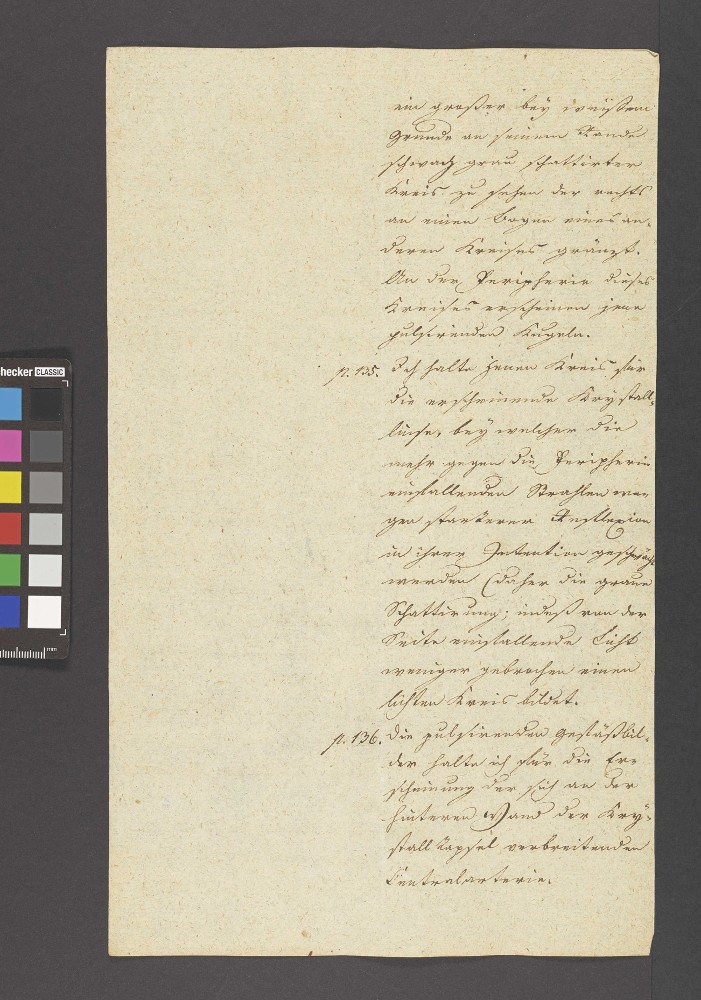 ein großer bey weißem
Grunde an seinem Rande
schwach grau schattirter
Kreis zu sehen der rechts
an einen Bogen eines an-
deren Kreises gränzt.
An der Peripherie dieses
Kreises erscheinen jene
pulsirenden Kugeln.
p. 135. Ich halte jenen Kreis für
die erscheinende Krystall-
linse, bey welcher die
mehr gegen die Peripherie
einfallenden Strahlen we-
gen starkerer Reflexion
in ihrer Intention geschwächt
werden (daher die graue
Schattirung; indeß von der
Seite einfallende Licht
weniger gebrochen einen
lichten Kreis bildet.
p. 136. Die pulsirenden Gefäßbil-
der halte ich für die Er-
scheinung der sich an der
hinteren Wand der Kry-
stallkapsel verbreitenden
Centralarterie.
hecker CLASSIC
mm